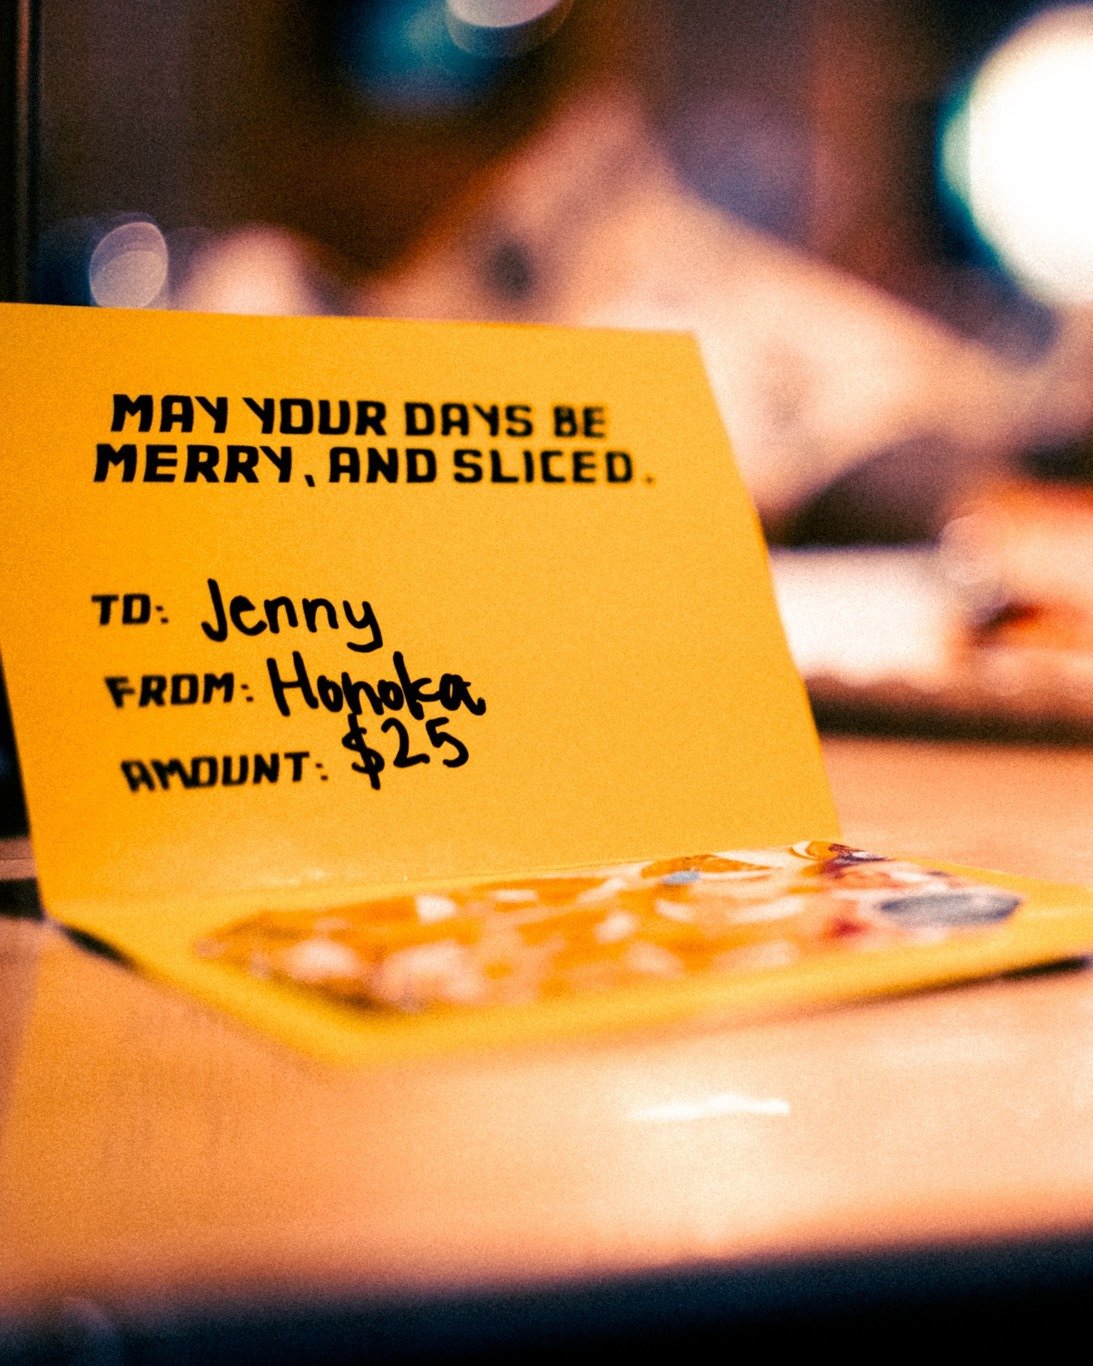 MAY YOUR DAYS BE
MERRY, AND SLICED.
TO: Jenny
FROM: Honoka
AMOUNT: $25